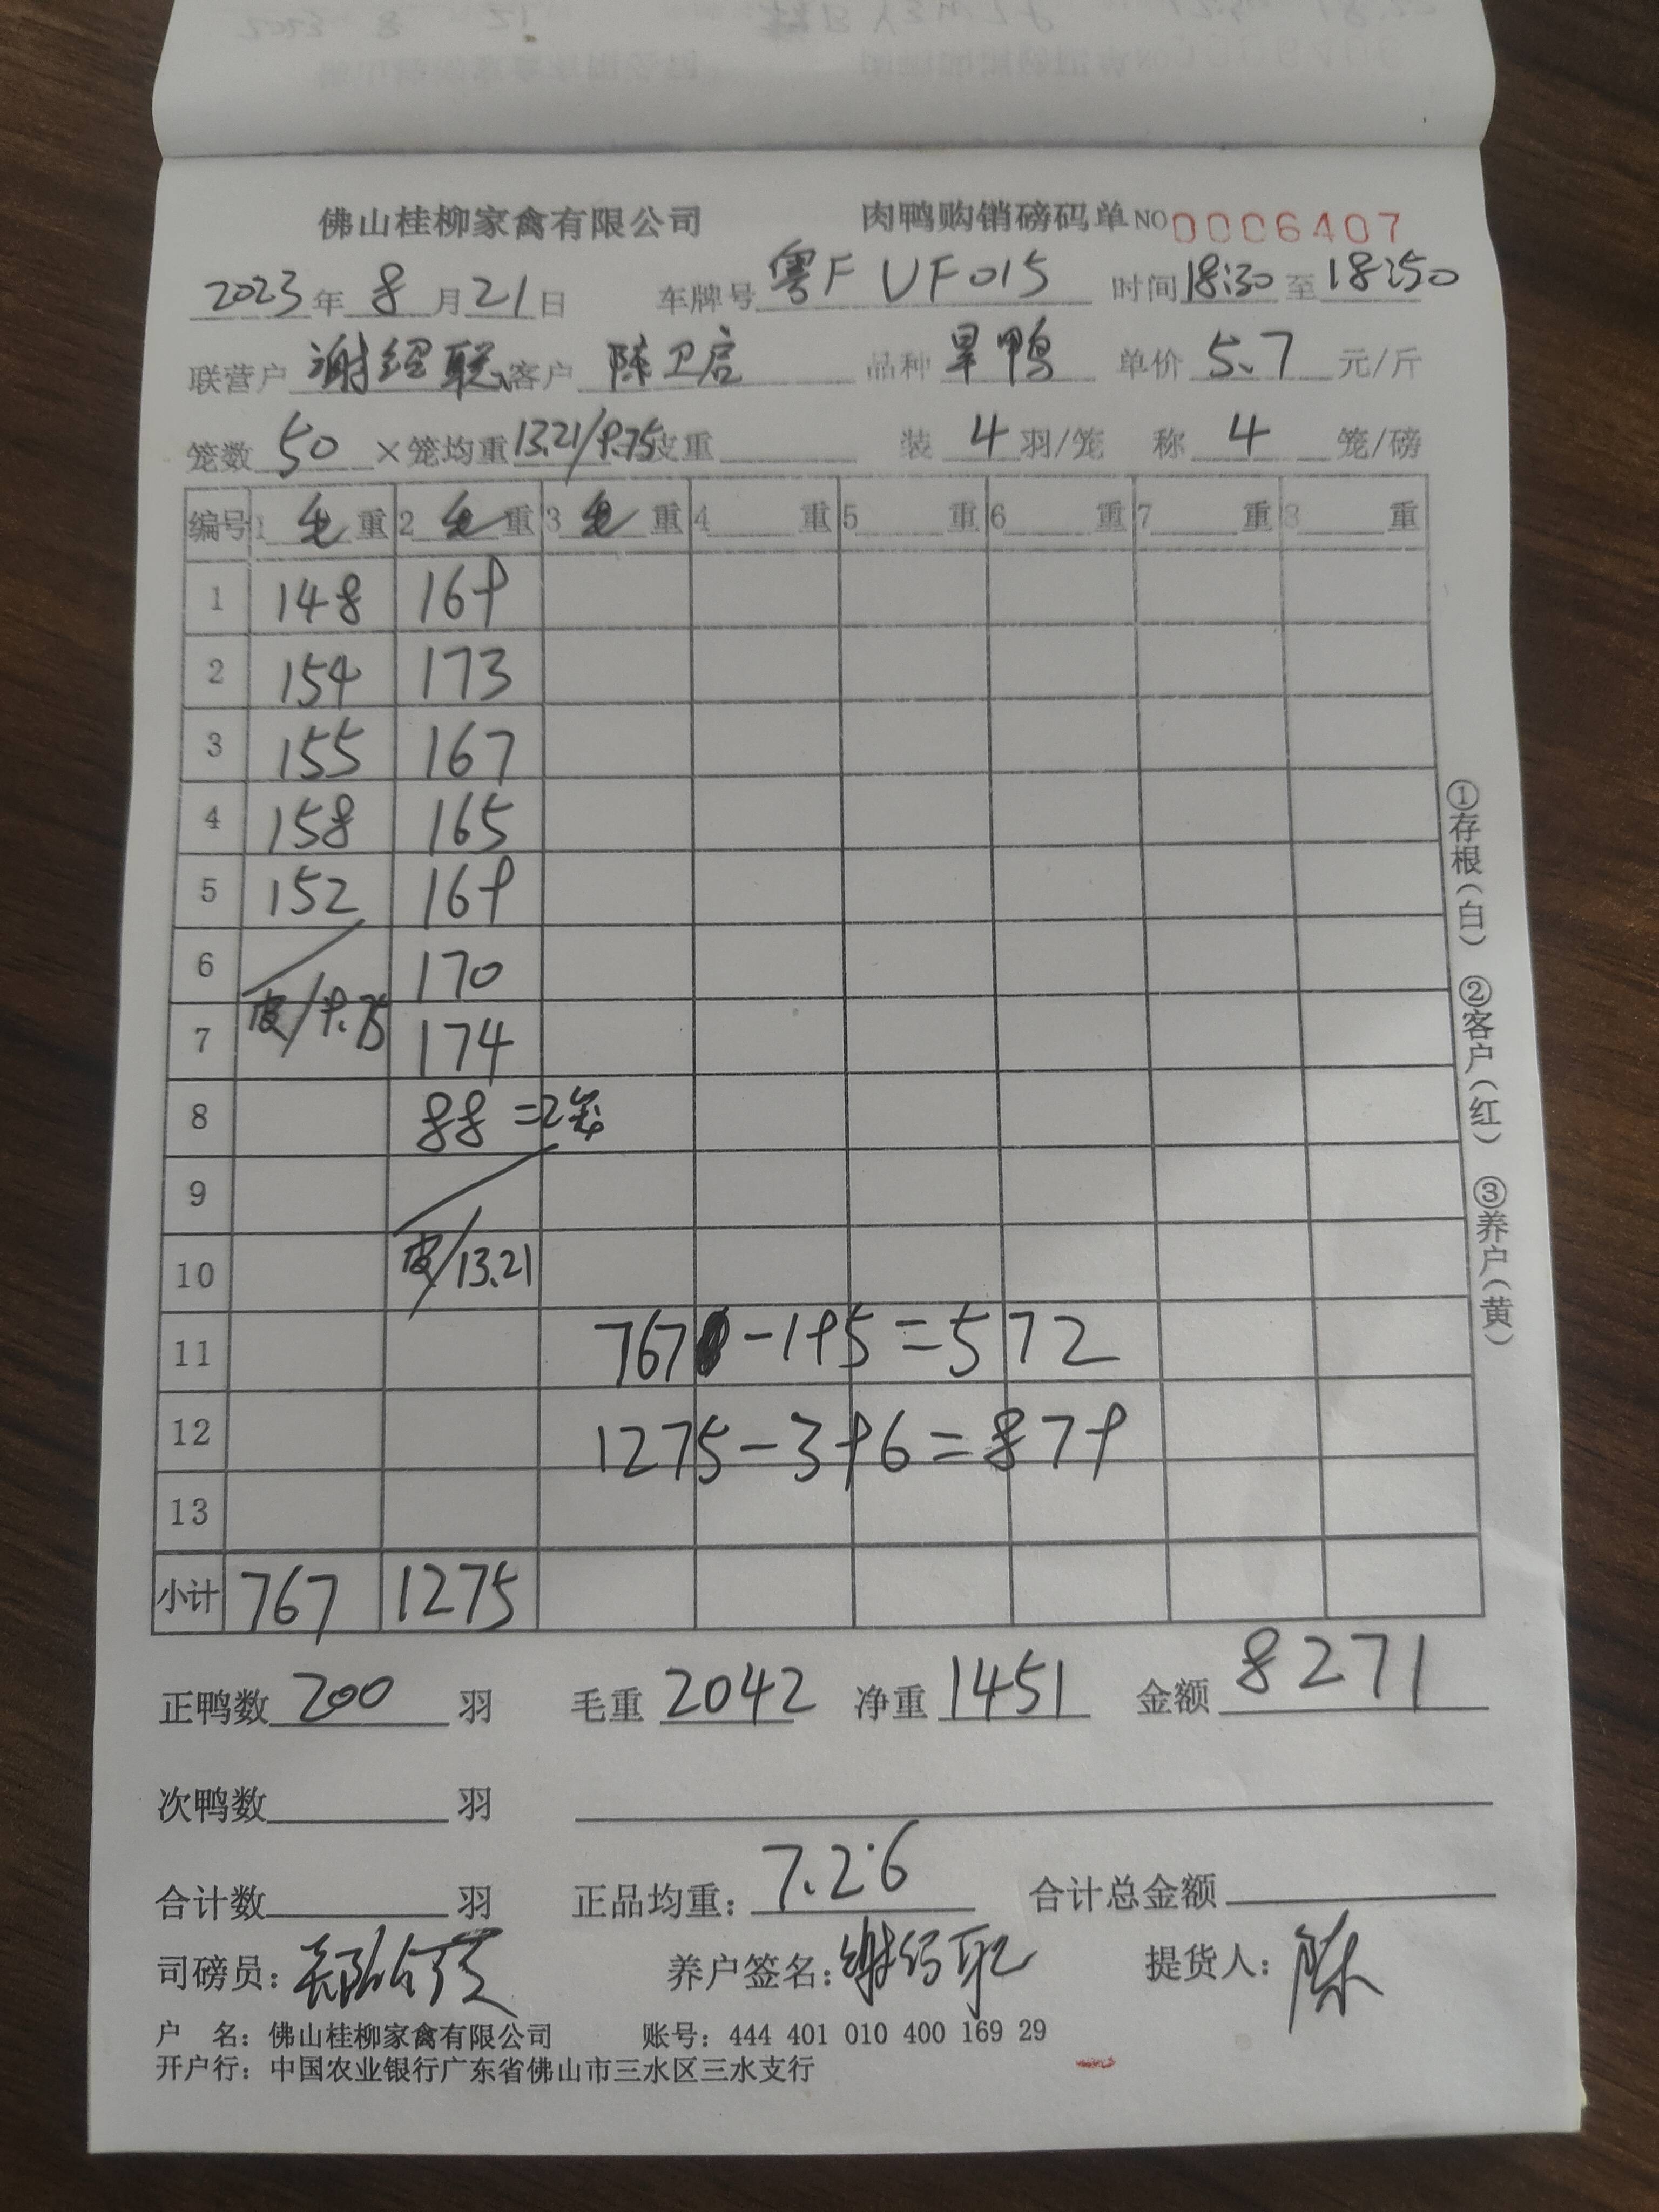 佛山桂柳家禽有限公司 肉鸭购销磅码单 NO 0006407
2023年 8月21日 车牌号 粤F UF015 时间 18:30 至 18:50
联营户 谢绍联 客户 陈卫启 品种 旱鸭 单价 5.7 元/斤
笼数 50 ×笼均重 13.21/9.75 皮重 装 4 羽/笼 称 4 笼/磅
编号 1 毛 重 2 毛 重 3 毛 重 4 重 5 重 6 重 7 重 8 重
1 148 169
2 154 173
3 155 167
4 158 165
5 152 169
6 170
7 皮/9.75 174
8 88=2笼
9
10 皮/13.21
11 767-195=572
12 1275-396=879
13
小计 767 1275
正鸭数 200 羽 毛重 2042 净重 1451 金额 8271
次鸭数 羽
合计数 羽 正品均重: 7.26 合计总金额
司磅员: 养户签名: 谢绍联 提货人: 陈
户 名: 佛山桂柳家禽有限公司 账号: 444 401 010 400 169 29
开户行: 中国农业银行广东省佛山市三水区三水支行
①存根(白) ②客户(红) ③养户(黄)